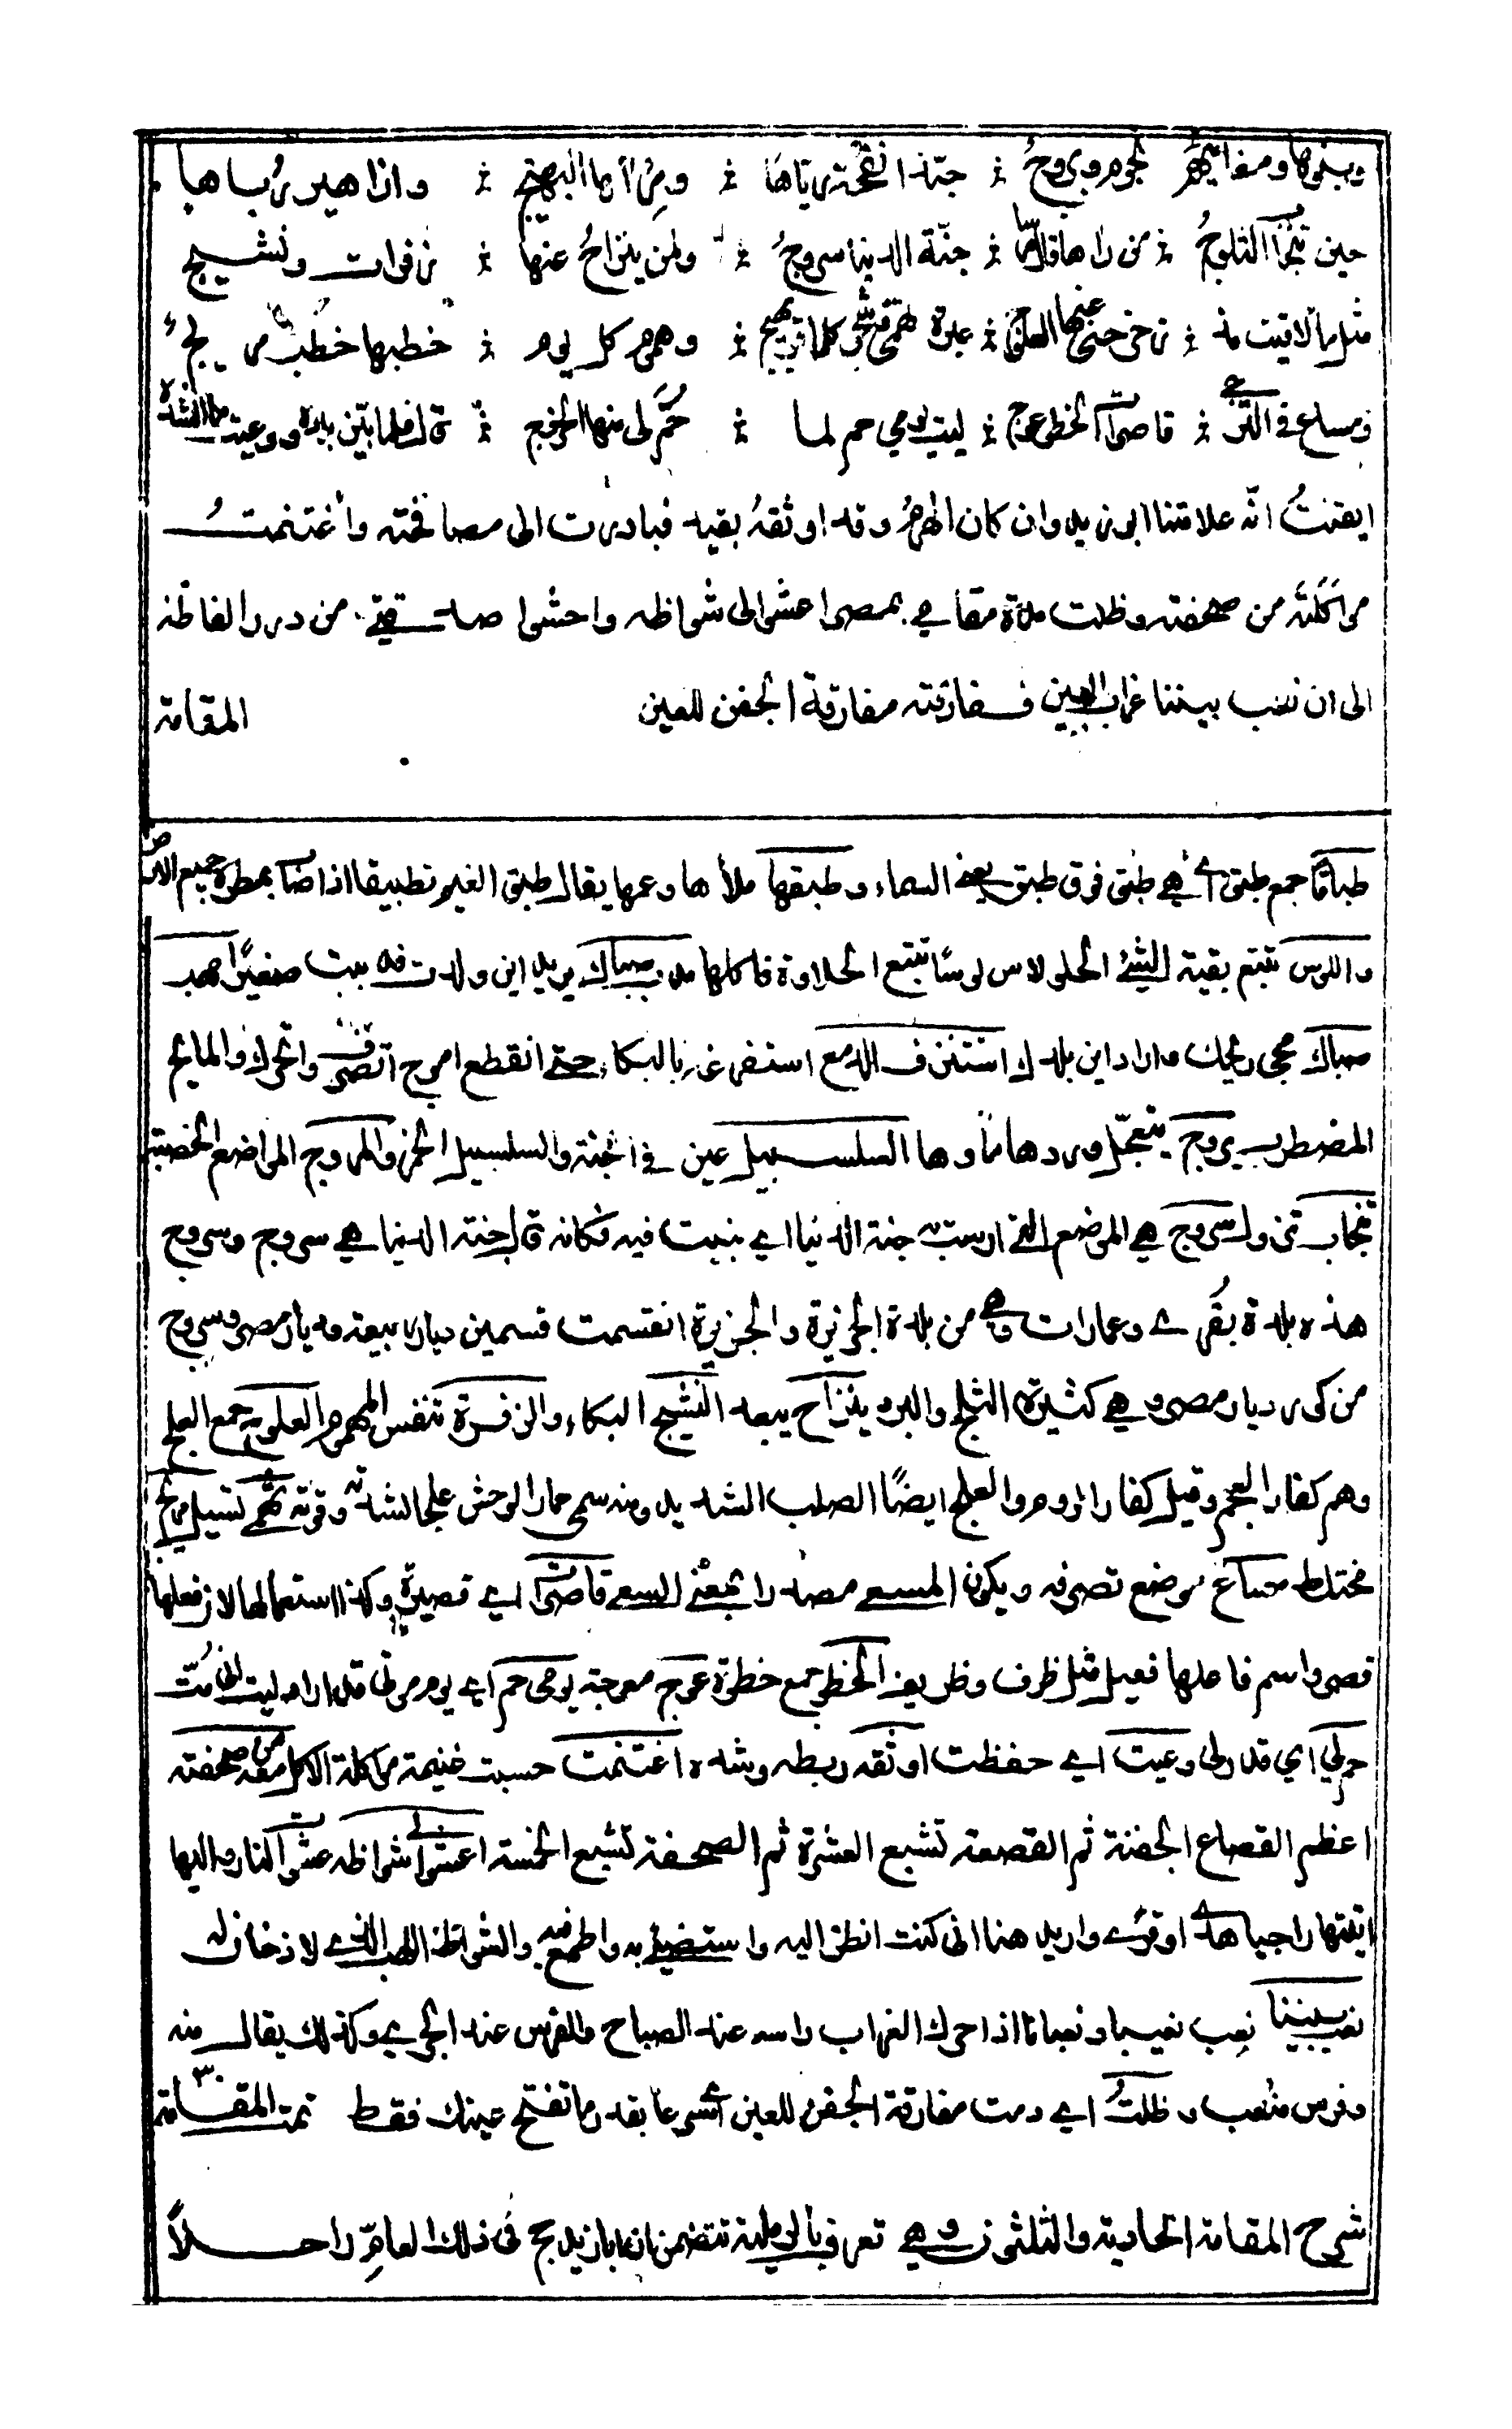 وبنوها ومغانيهم نجوم وبروج ؞ حبذا نفحة رياها ؞ ومرآها البهيج ؞ وازاهير رباها
حين تنجاب الثلوج ؞ من راها قال مرسى ؞ جنة الدنيا سروج ؞ ولمن ينزاح عنها ؞ زفرات ونشيج
مثل ما لاقيت مذ ؞ زحزحني عنها العلوج ؞ عبرة تهمي وشجو كلما قر يهيج ؞ وهموم كل يوم ؞ خطبها خطب مريج
ومساع في الترجي ؞ قاصرات الخطو عوج ؞ ليت يومي حم لما ؞ حم لي منها الخروج ؞ قال فلما بين بلده ووعيت ما انشده
ايقنت انه علامتنا ابو زيد وان كان الهرم قد اوثقه بقيد فبادرت الى مصافحته واغتنمت
مواكلته من صحفته وظلت مدة مقامي بمصر اعشوا الى شواظه واحشوا صدفتي من درر الفاظه
الى ان نعب بيننا غراب البين ففارقته مفارقة الجفن للعين المقامة
طباقا جمع طبق اي هي طبق فوق طبق يعني السماء وطبقها ملأها وعمها يقال طبق الغيم تطبيقا اذا اصاب بمطره جميع الارض
واللوس تتبع بقية الشئ الحلو لاس لوسا تتبع الحلاوة فاكلها مد صباك يريد اين ولدت فدببت صغيرا مهد
صباك مجى ريحك واراد اين بلدك استنزف الدمع استفرغه بالبكاء حتى انقطع اموج اتصرف واتحرك والمايج
المضطرب يروج يتعجل وردها ماوها السلسبيل عين في الجنة والسلسبيل الخمر والمروج المواضع الخصبة
تنجاب تزول سروج هي الموضع الذي ارست به جنة الدنيا اي بنيت فيه فكانه قال جنة الدنيا هي سروج وسروج
هذه بلدة بقرى وعمارات وهي من بلدة الجزيرة والجزيرة انقسمت قسمين ديار ربيعة وديار مصر وسروج
من كور ديار مصر وهي كثيرة الثلج والبرد ينزاح يبعد النشيج البكاء والزفرة تنفس المهموم العلوج جمع العلج
وهم كفار العجم وقيل كفار الروم والعلج ايضا الصلب الشديد ومنه سمى حمار الوحش علجا لشدته وقوته تهمي تسيل مريج
مختلط مساع موضع تصرف ويكون المسعى مصدرا بمعنى السعي قاصرات اي قصيرة وكذا استعمالها لان فعلها
قصر واسم فاعلها فعيل مثل ظرف وظريف الخطو جمع خطوة عوج معوجة يومى حم اي يوم موتي قدر اراد ليت اني مت
حم لي اي قدر لي وعيت اي حفظت اوثقه ربطه وشده اغتنمت حسبت غنيمة مواكلة الاكل معه من صحفته
اعظم القصاع الجفنة ثم القصعة تشبع العشرة ثم الصحفة تشبع الخمسة اعشوا الى شواظه عشوت النار واليها
اتيتها راجيا هدى او قرى واريد هنا انى كنت انظر اليه واستضئ به واطمع فيه والشواظ اللهب الذي لا دخان له
نعب بيننا نعب نعيبا ونعبانا اذا حرك الغراب راسه عند الصياح والفرس عند الجري وكذلك يقال منه
وفرس منعب وظلت اي دمت مفارقة الجفن للعين اي سريعا بقدر ما تفتح عينك فقط تمت المقامة ٣٠
شرح المقامة الحادية والثلثون وهي تعرف بالرملية تتضمن ان ابا زيد حج في ذلك العام راحلا